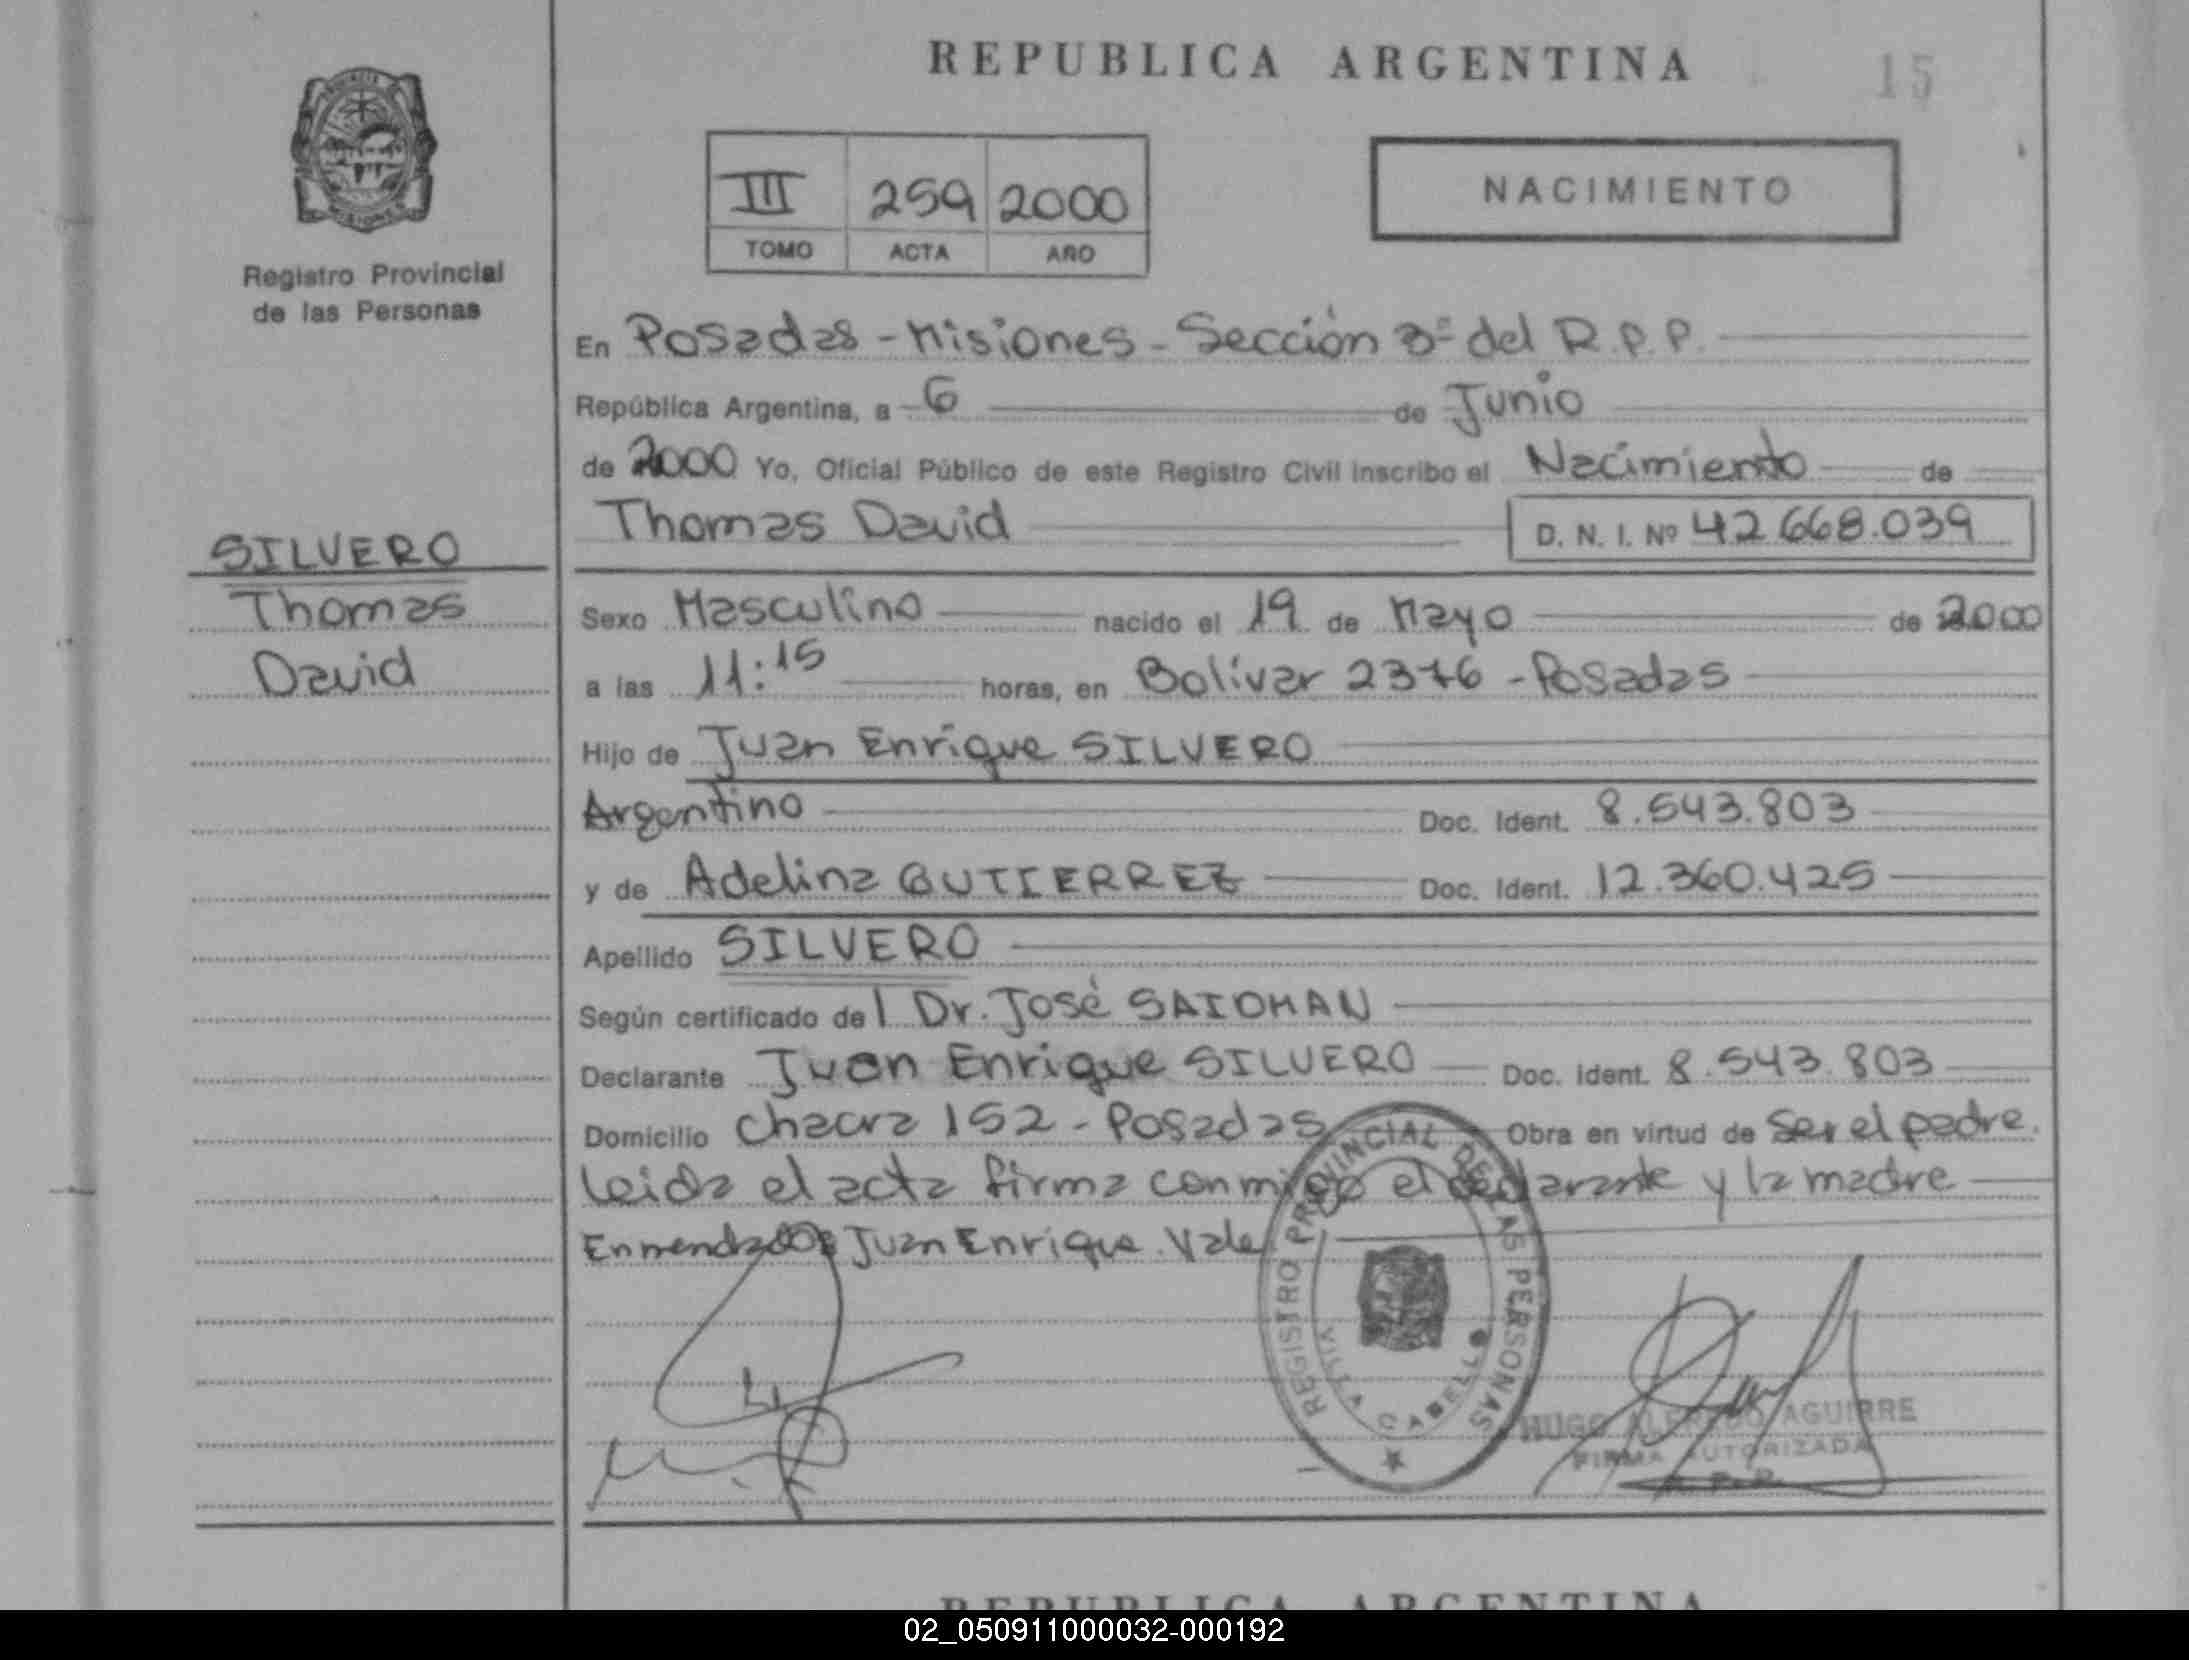 REPUBLICA ARGENTINA
15
PROVINCIA
MISIONES
Registro Provincial
de las Personas
III 259 2000
TOMO ACTA AÑO
NACIMIENTO
En Posadas - Misiones - Sección 3ª del R.P.P.
República Argentina, a 6 de Junio
de 2000 Yo, Oficial Público de este Registro Civil inscribo el Nacimiento de
Thomas David D. N. I. Nº 42.668.039
SILVERO
Thomas
David
Sexo Masculino nacido el 19 de Mayo de 2000
a las 11:15 horas, en Bolívar 2376 - Posadas
Hijo de Juan Enrique SILVERO
Argentino Doc. Ident. 8.543.803
y de Adelina GUTIERREZ Doc. Ident. 12.360.425
Apellido SILVERO
Según certificado del Dr. José SAIDMAN
Declarante Juan Enrique SILVERO Doc. Ident. 8.543.803
Domicilio Chacra 152 - Posadas Obra en virtud de ser el padre.
Leida el acta firma conmigo el declarante y la madre
Enmendado: Juan Enrique. Vale
REGISTRO PROVINCIAL DE LAS PERSONAS
VILLA CABELLO
HUGO ALFREDO AGUIRRE
FIRMA AUTORIZADA
R. P. P.
REPUBLICA ARGENTINA
02_050911000032-000192